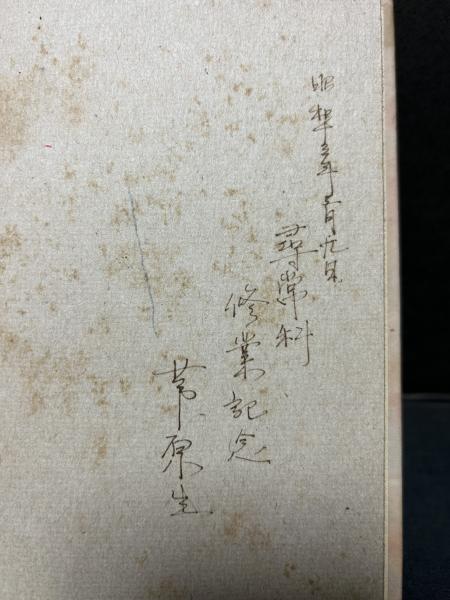 昭和五年三月九日
尋常科
修業記念
葦原生